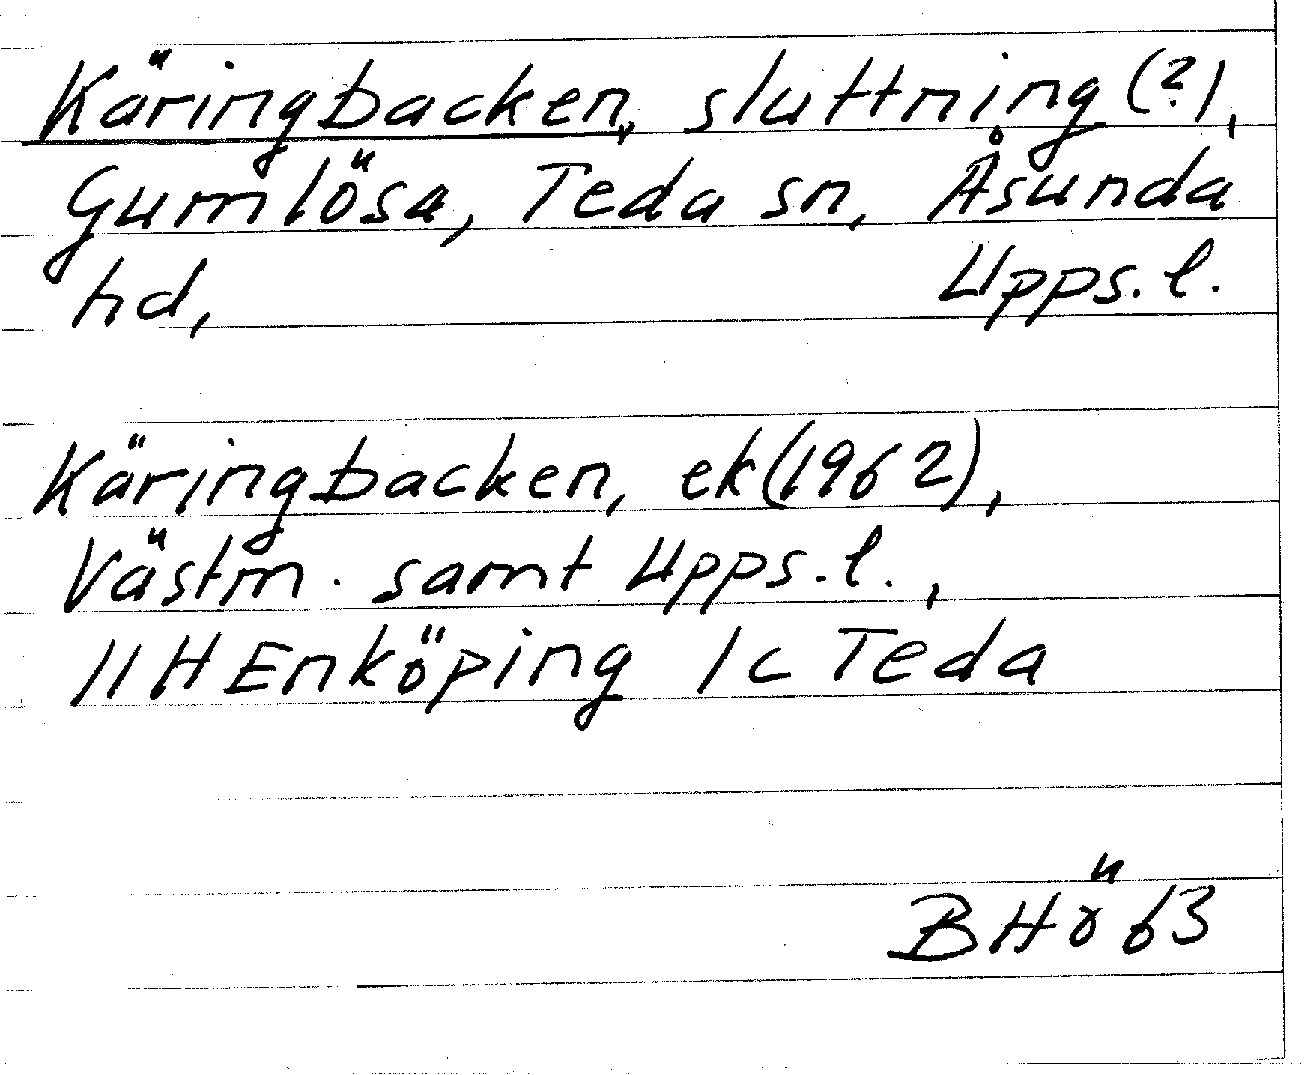 Käringbacken, sluttning (?),
Gumlösa, Teda sn, Åsunda
hd, Upps. l.
Käringbacken, ek (1962),
Västm. samt Upps. l.,
11H Enköping 1c Teda
BHö 63